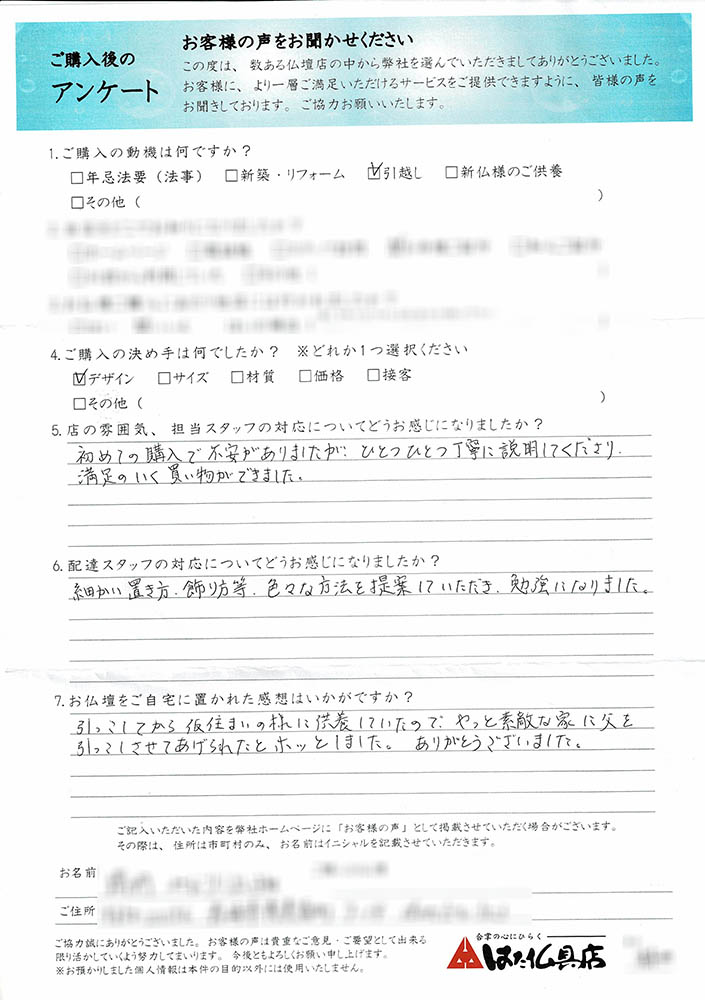 ご購入後の
アンケート
お客様の声をお聞かせください
この度は、数ある仏壇店の中から弊社を選んでいただきましてありがとうございました。
お客様に、より一層ご満足いただけるサービスをご提供できますように、皆様の声を
お聞きしております。ご協力お願いいたします。
1.ご購入の動機は何ですか？
□年忌法要（法事） □新築・リフォーム ☑引越し □新仏様のご供養
□その他（ ）
4.ご購入の決め手は何でしたか？ ※どれか1つ選択ください
☑デザイン □サイズ □材質 □価格 □接客
□その他（ ）
5.店の雰囲気、担当スタッフの対応についてどうお感じになりましたか？
初めての購入で不安がありましたが、ひとつひとつ丁寧に説明してくださり、
満足のいく買い物ができました。
6.配達スタッフの対応についてどうお感じになりましたか？
細かい置き方、飾り方等、色々な方法を提案していただき、勉強になりました。
7.お仏壇をご自宅に置かれた感想はいかがですか？
引っこしてから仮住まいの様に供養していたので、やっと素敵な家に父を
引っこしさせてあげられたとホッとしました。 ありがとうございました。
ご記入いただいた内容を弊社ホームページに「お客様の声」として掲載させていただく場合がございます。
その際は、住所は市町村のみ、お名前はイニシャルを記載させていただきます。
お名前
ご住所
ご協力誠にありがとうございました。お客様の声は貴重なご意見・ご要望として出来る
限り活かしていくよう努力してまいります。今後ともよろしくお願い申し上げます。
※お預かりしました個人情報は本件の目的以外には使用いたしません。
合掌の心にひらく
はた仏具店